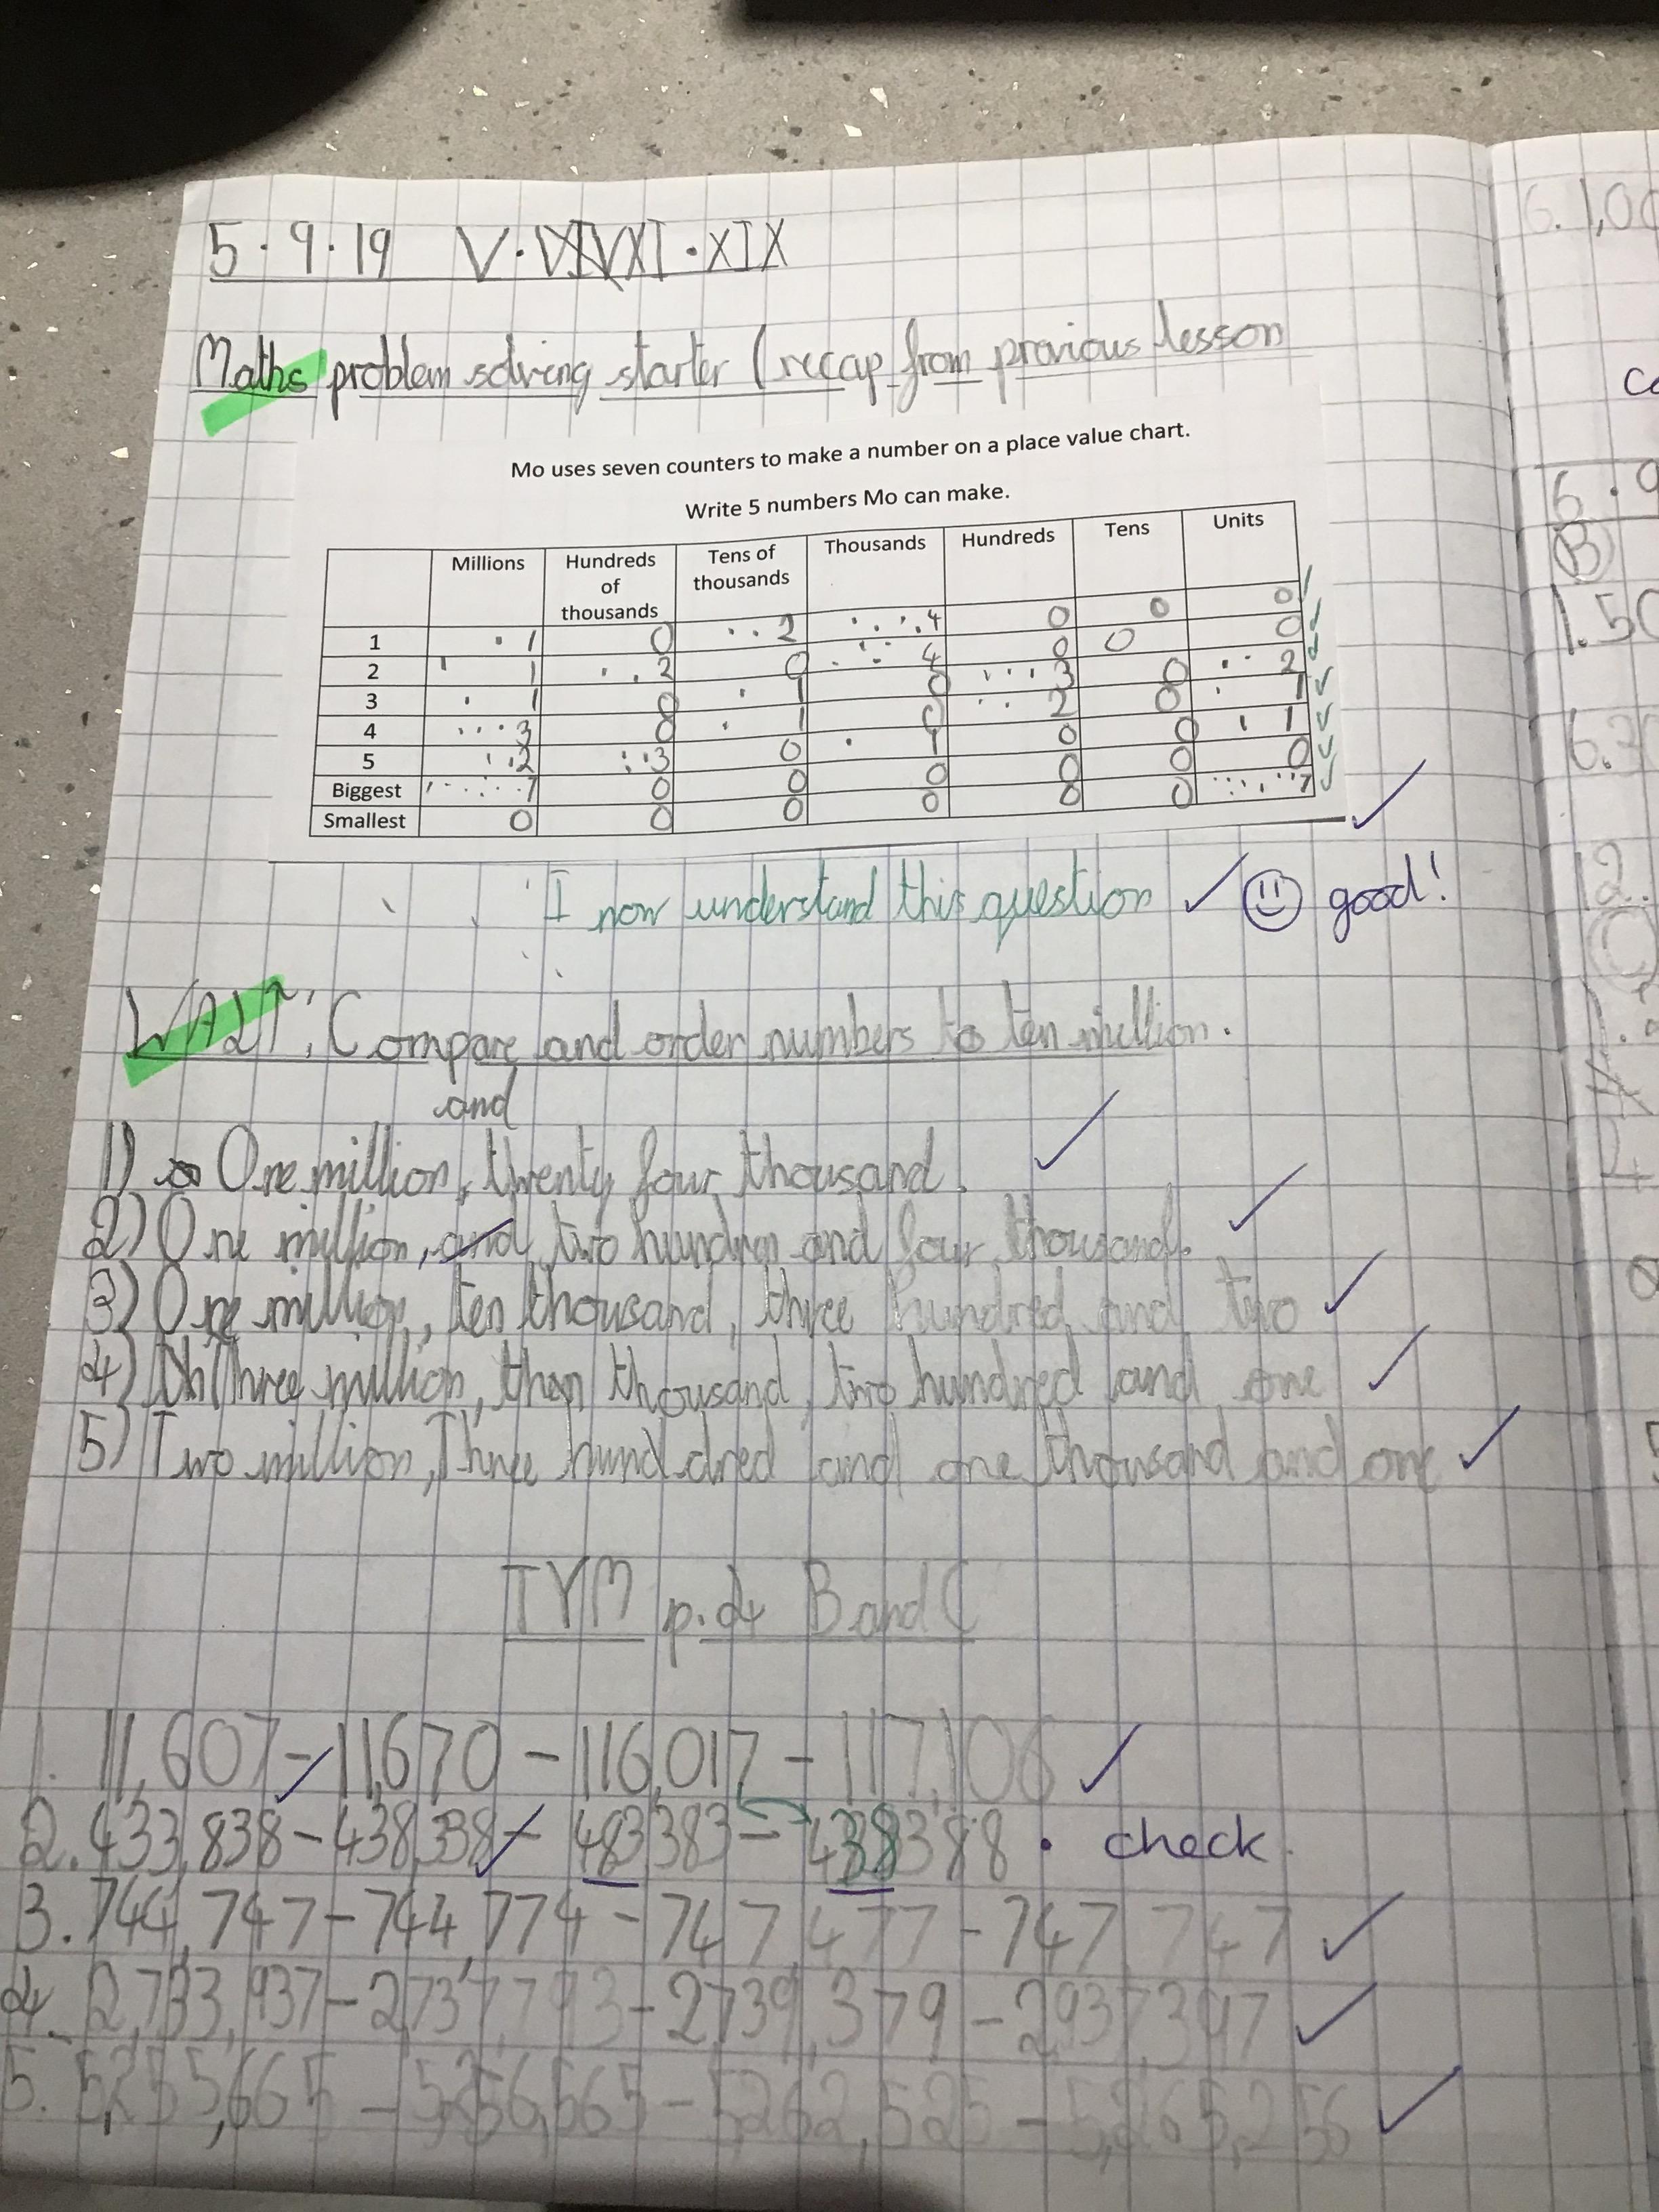 5.9.19 V. XI.XIX
Maths problem solving starter (recap from previous lesson
Mo uses seven counters to make a number on a place value chart.
Write 5 numbers Mo can make.
Millions Hundreds of thousands Tens of thousands Thousands Hundreds Tens Units
1 1 0 2 4 0 0 0
2 1 2 0 4 0 0 0
3 1 0 1 0 3 0 2
4 3 0 1 0 2 0 1
5 2 3 0 1 0 0 1
Biggest 7 0 0 0 0 0 0
Smallest 0 0 0 0 0 0 7
I now understand this question ✓ good!
WALT: Compare and order numbers to ten million.
and
1) One million, twenty four thousand.
2) One million, and two hundred and four thousand.
3) One million, ten thousand, three hundred and two
4) Three million, then thousand, two hundred and one
5) Two million, Three hundred and one thousand and one
TYM p.4 B and C
1. 11,607 - 11,670 - 116,017 - 117,106
2. 433,838 - 438,338 - 483,383 - 438388 . check.
3. 744,747 - 744,774 - 747,477 - 747,747
4. 2,733,937 - 2,737,793 - 2,739,379 - 2,937,397
5. 5,255,665 - 5,256,565 - 5,262,525 - 5,265,256
6. 1,00
6.9
B
1. 50